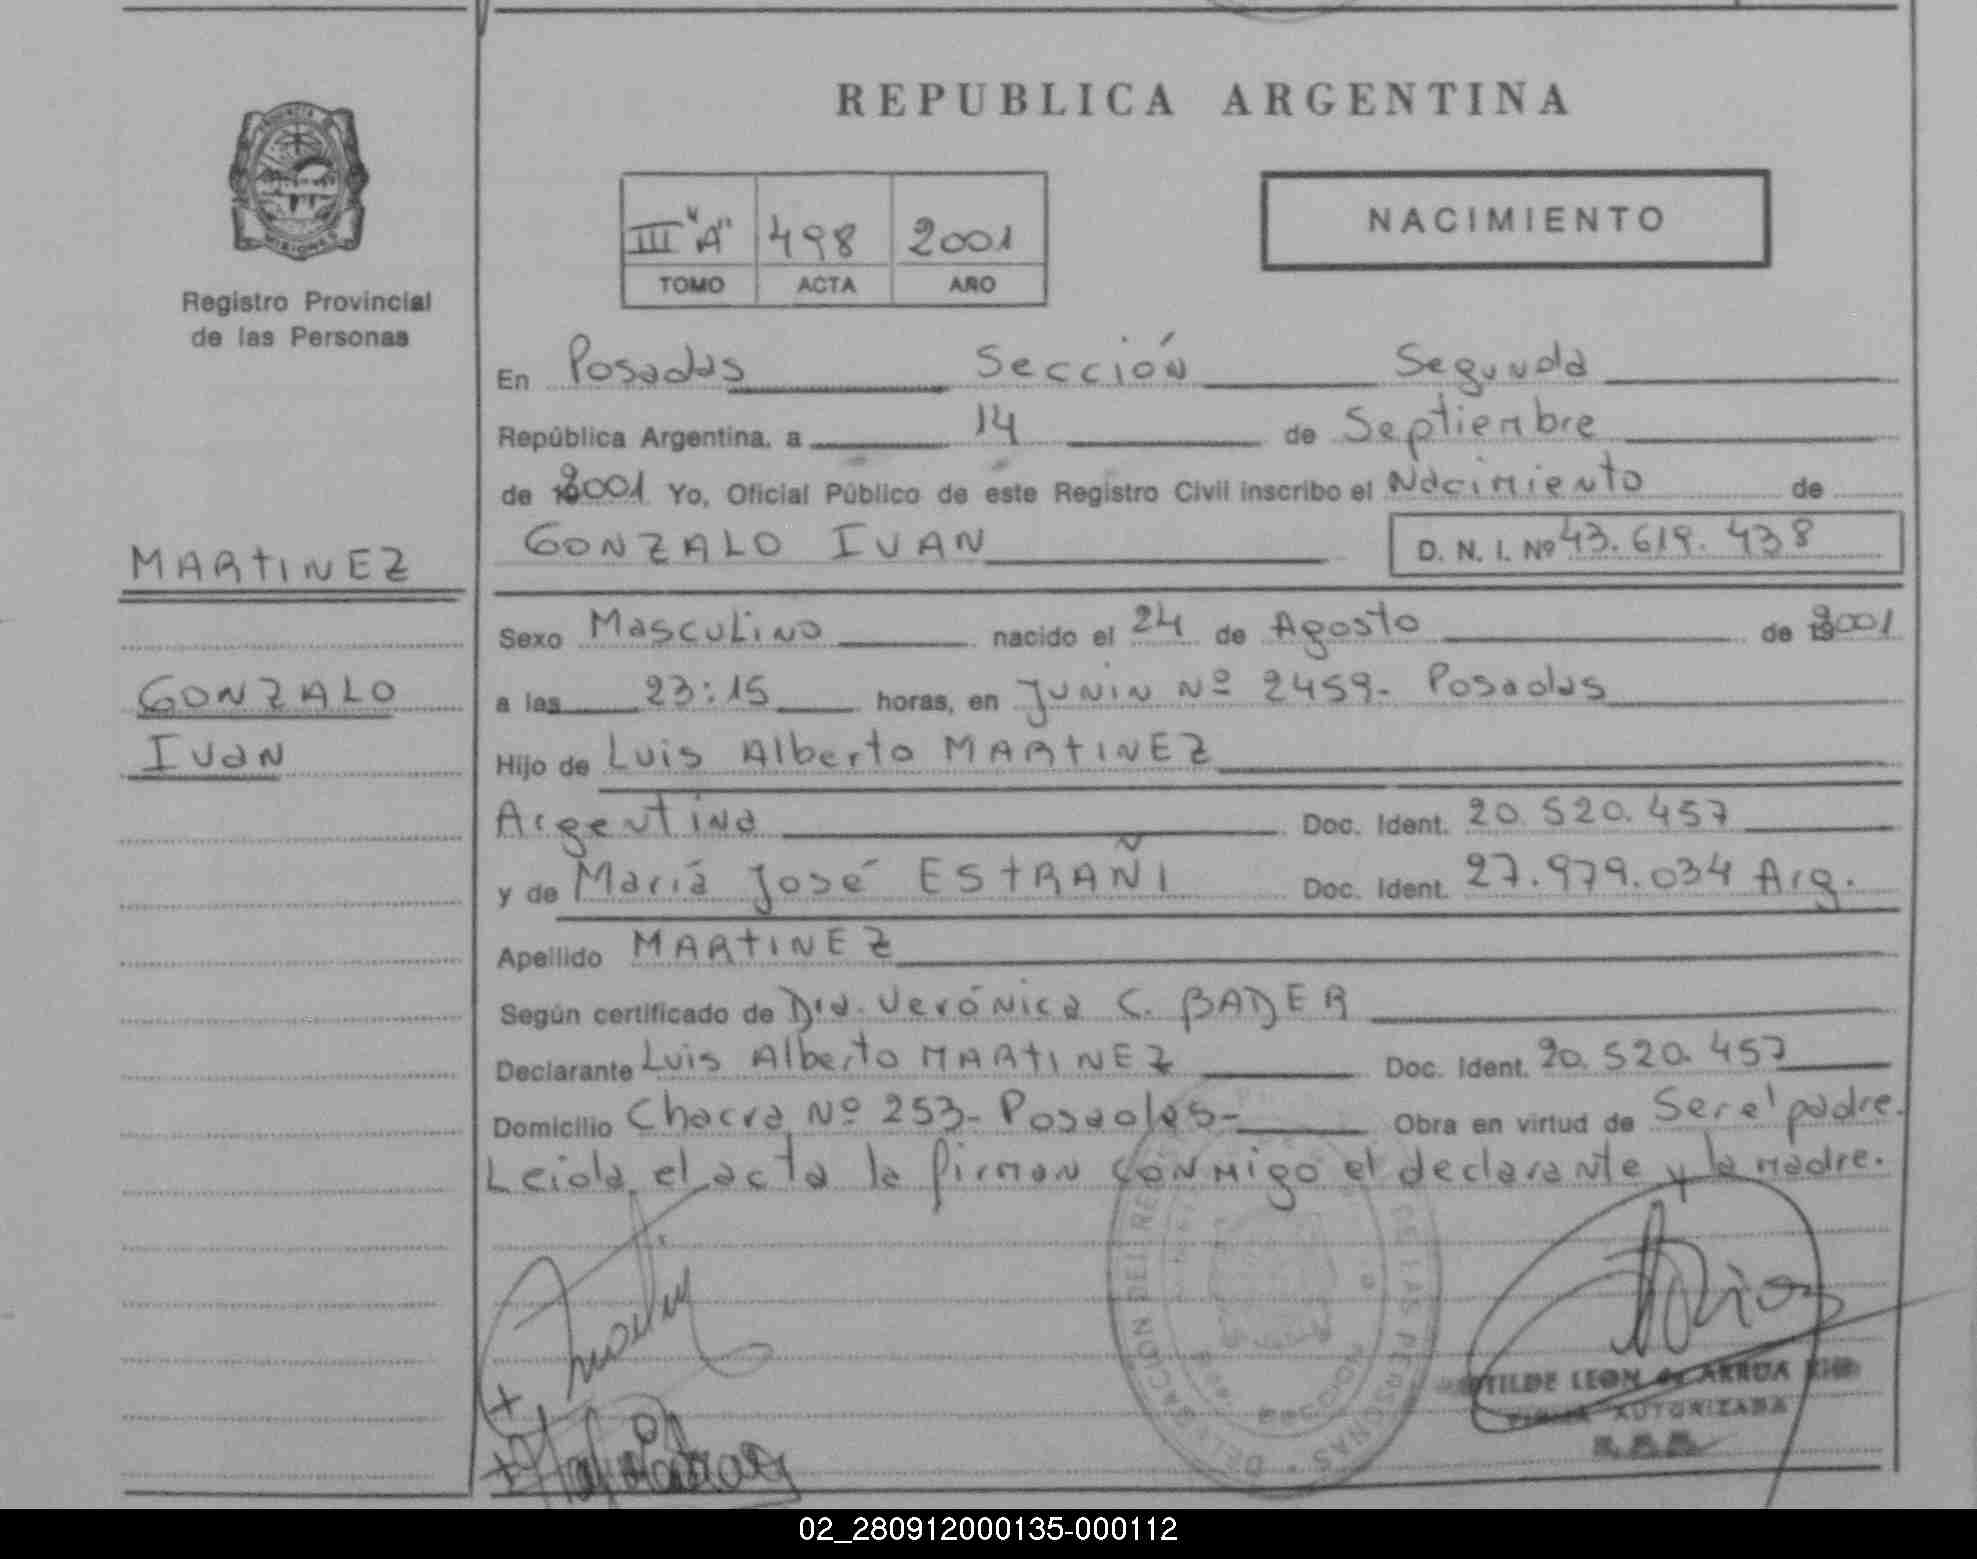 REPUBLICA ARGENTINA
PROVINCIA
MISIONES
Registro Provincial
de las Personas
III "A" 498 2001
TOMO ACTA AÑO
NACIMIENTO
En Posadas Sección Segunda
República Argentina, a 14 de Septiembre
de 2001 Yo, Oficial Público de este Registro Civil inscribo el Nacimiento de
GONZALO IVAN D. N. I. Nº 43.619.438
MARTINEZ
GONZALO
Ivan
Sexo Masculino nacido el 24 de Agosto de 2001
a las 23:15 horas, en Junin Nº 2459- Posadas
Hijo de Luis Alberto MARTINEZ
Argentina Doc. Ident. 20.520.457
y de Mariá José ESTRAÑI Doc. Ident. 27.979.034 Arg.
Apellido MARTINEZ
Según certificado de Dra. Verónica C. BADER
Declarante Luis Alberto MARTINEZ Doc. Ident. 20.520.457
Domicilio Chacra Nº 253- Posadas- Obra en virtud de Ser el padre.
Leida el acta la firman conmigo el declarante y la madre.
DELEGACION DEL REGISTRO DE LAS PERSONAS
LEON de ARRUA
FIRMA AUTORIZADA
02_280912000135-000112